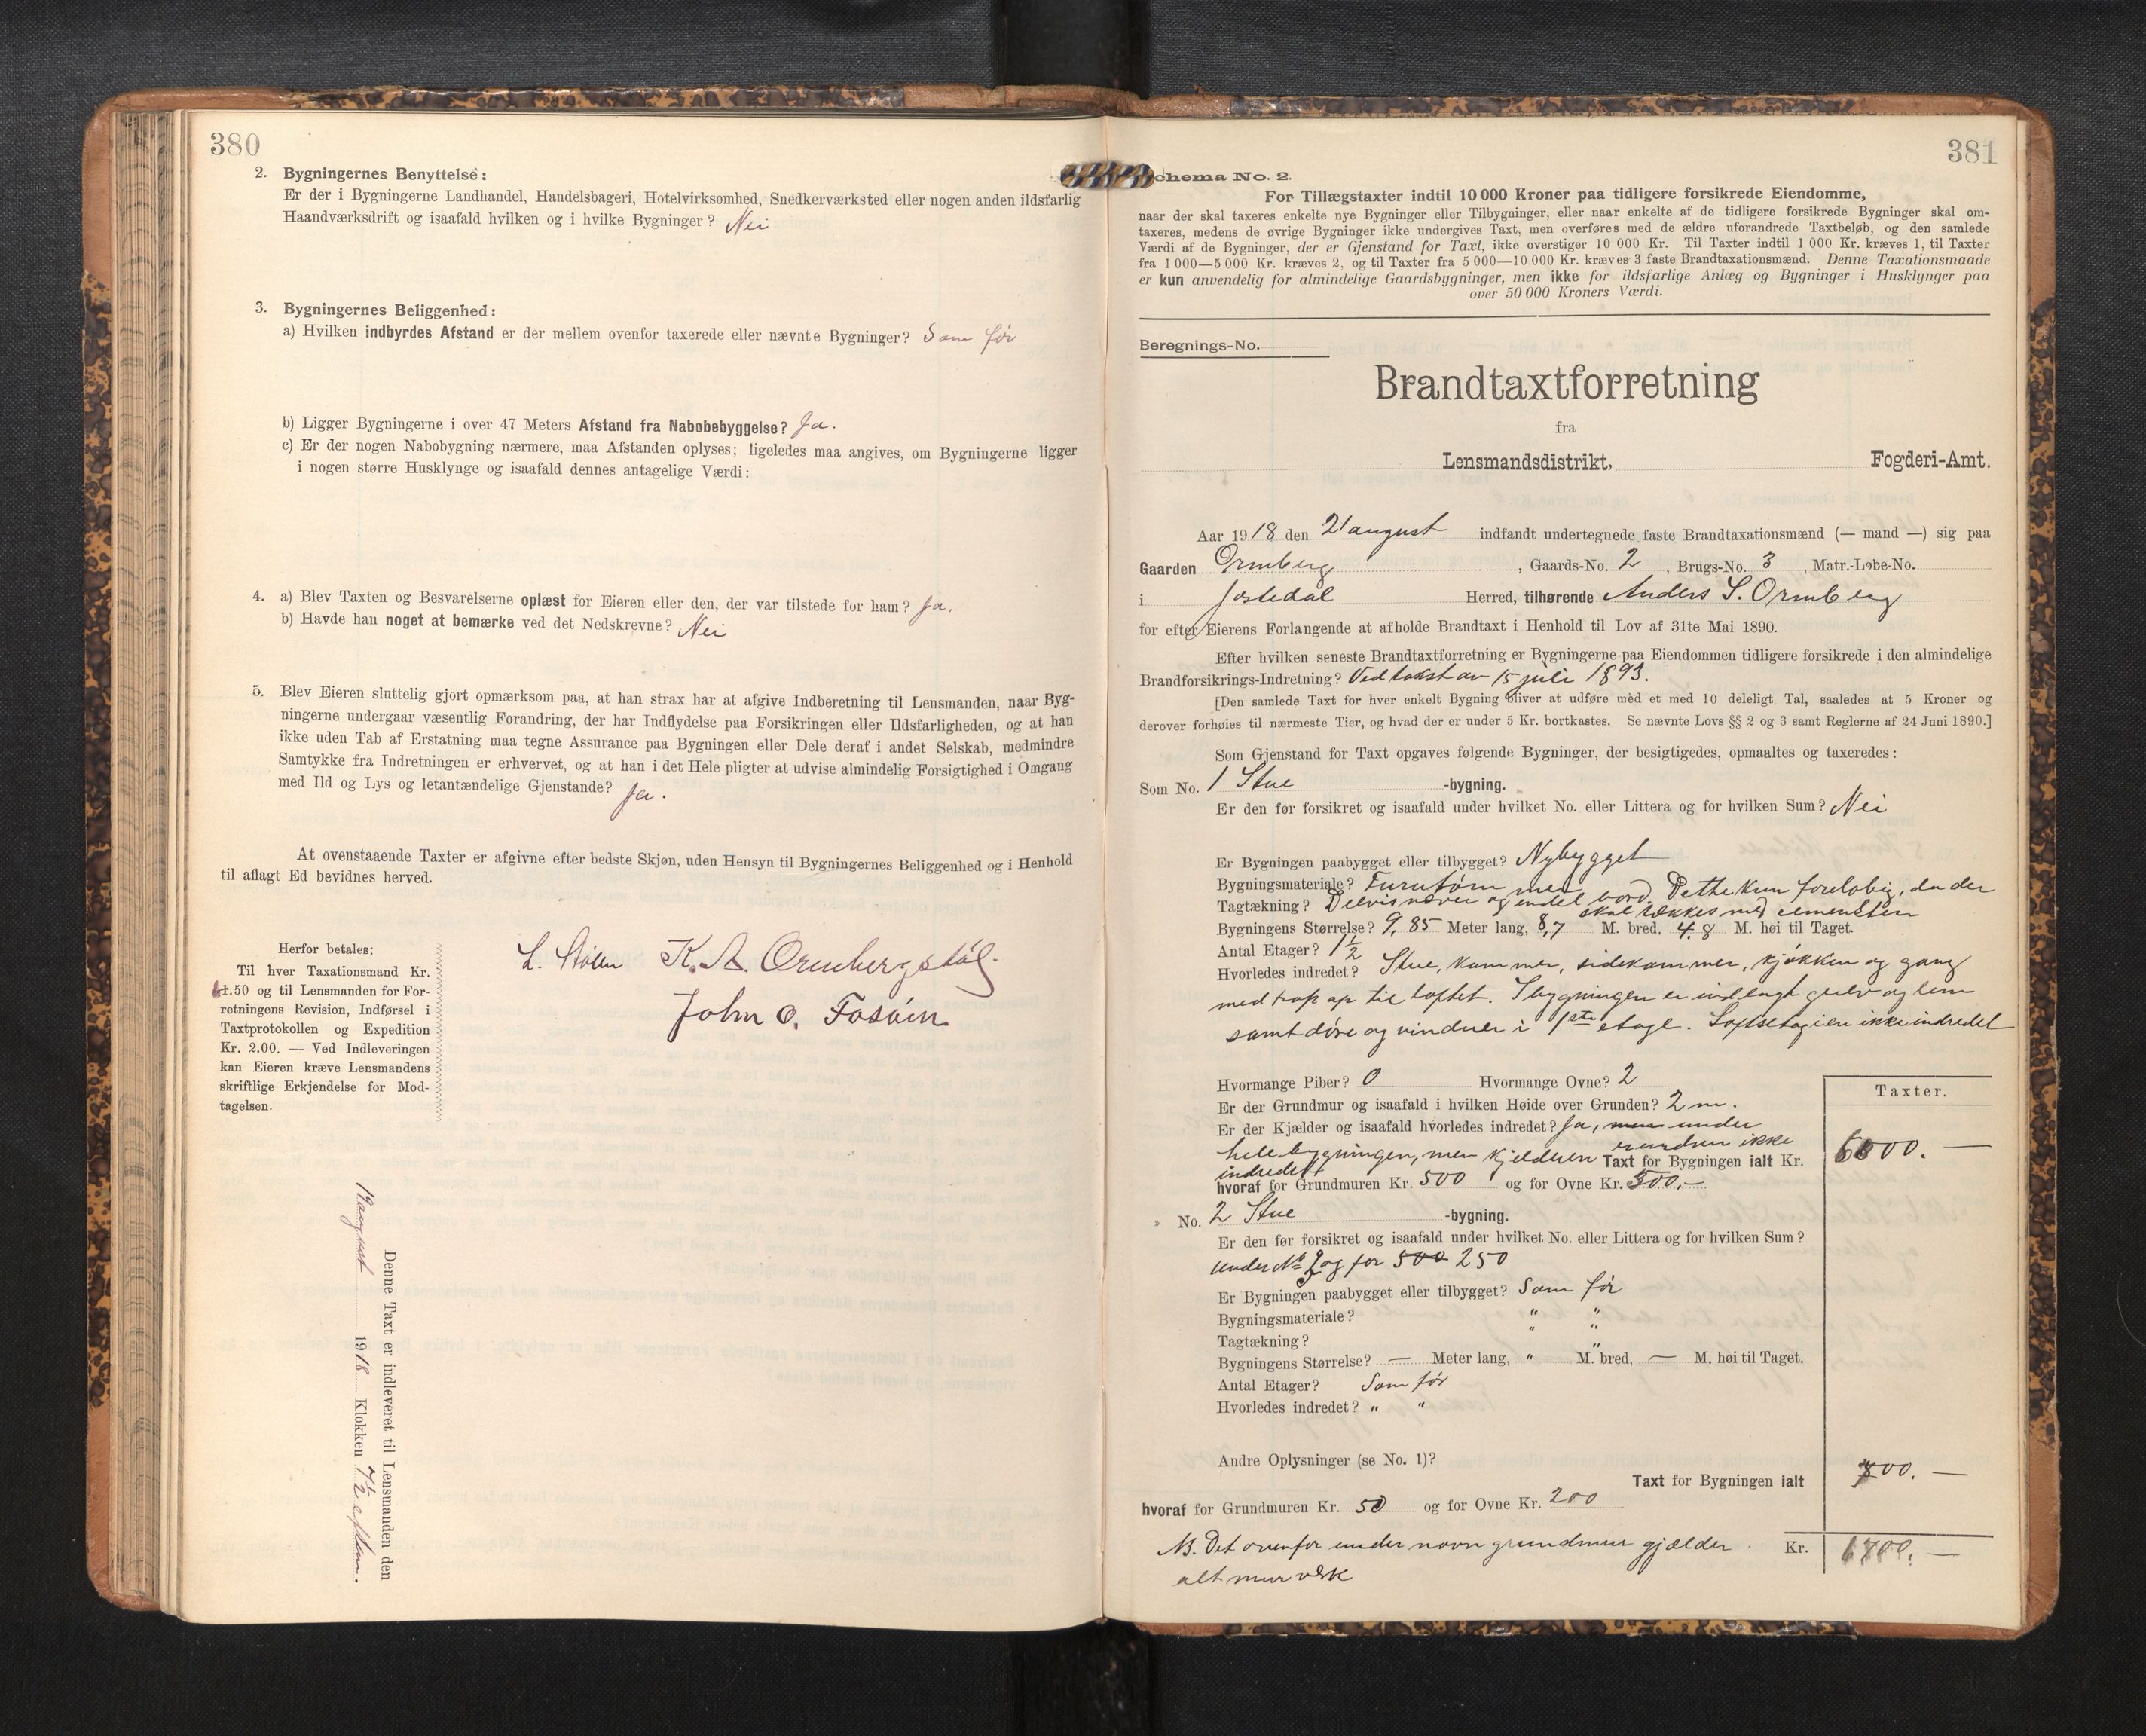 380
2. Bygningernes Benyttelse:
Er der i Bygningerne Landhandel, Handelsbageri, Hotelvirksomhed, Snedkerværksted eller nogen anden ildsfarlig
Haandværksdrift og isaafald hvilken og i hvilke Bygninger? Nei
3. Bygningernes Beliggenhed:
a) Hvilken indbyrdes Afstand er der mellem ovenfor taxerede eller nævnte Bygninger? Som før
b) Ligger Bygningerne i over 47 Meters Afstand fra Nabobebyggelse? Ja.
c) Er der nogen Nabobygning nærmere, maa Afstanden oplyses; ligeledes maa angives, om Bygningerne ligger
i nogen større Husklynge og isaafald dennes antagelige Værdi:
4. a) Blev Taxten og Besvarelserne oplæst for Eieren eller den, der var tilstede for ham? Ja.
b) Havde han noget at bemærke ved det Nedskrevne? Nei
5. Blev Eieren sluttelig gjort opmærksom paa, at han strax har at afgive Indberetning til Lensmanden, naar Byg-
ningerne undergaar væsentlig Forandring, der har Indflydelse paa Forsikringen eller Ildsfarligheden, og at han
ikke uden Tab af Erstatning maa tegne Assurance paa Bygningen eller Dele deraf i andet Selskab, medmindre
Samtykke fra Indretningen er erhvervet, og at han i det Hele pligter at udvise almindelig Forsigtighed i Omgang
med Ild og Lys og letantændelige Gjenstande? Ja.
At ovenstaaende Taxter er afgivne efter bedste Skjøn, uden Hensyn til Bygningernes Beliggenhed og i Henhold
til aflagt Ed bevidnes herved.
L. Stølen K. A. Ormbergstøl.
John O. Fosøien
Herfor betales:
Til hver Taxationsmand Kr.
.50 og til Lensmanden for For-
retningens Revision, Indførsel i
Taxtprotokollen og Expedition
Kr. 2.00. — Ved Indleveringen
kan Eieren kræve Lensmandens
skriftlige Erkjendelse for Mod-
tagelsen.
Denne Taxt er indleveret til Lensmanden den
august 1918 Klokken 7½ eftm.
381
chema No. 2.
For Tillægstaxter indtil 10 000 Kroner paa tidligere forsikrede Eiendomme,
naar der skal taxeres enkelte nye Bygninger eller Tilbygninger, eller naar enkelte af de tidligere forsikrede Bygninger skal om-
taxeres, medens de øvrige Bygninger ikke undergives Taxt, men overføres med de ældre uforandrede Taxtbeløb, og den samlede
Værdi af de Bygninger, der er Gjenstand for Taxt, ikke overstiger 10 000 Kr. Til Taxter indtil 1 000 Kr. kræves 1, til Taxter
fra 1 000—5 000 Kr. kræves 2, og til Taxter fra 5 000—10 000 Kr. kræves 3 faste Brandtaxationsmænd. Denne Taxationsmaade
er kun anvendelig for almindelige Gaardsbygninger, men ikke for ildsfarlige Anlæg og Bygninger i Husklynger paa
over 50 000 Kroners Værdi.
Beregnings-No.
Brandtaxtforretning
fra
Lensmandsdistrikt, Fogderi-Amt.
Aar 1918 den 21 august indfandt undertegnede faste Brandtaxationsmænd (— mand —) sig paa
Gaarden Ormberg, Gaards-No. 2, Brugs-No. 3, Matr.-Løbe-No.
i Jostedal Herred, tilhørende Anders S. Ormberg
for efter Eierens Forlangende at afholde Brandtaxt i Henhold til Lov af 31te Mai 1890.
Efter hvilken seneste Brandtaxtforretning er Bygningerne paa Eiendommen tidligere forsikrede i den almindelige
Brandforsikrings-Indretning? Ved takst av 15 juli 1893.
[Den samlede Taxt for hver enkelt Bygning bliver at udføre med et med 10 deleligt Tal, saaledes at 5 Kroner og
derover forhøies til nærmeste Tier, og hvad der er under 5 Kr. bortkastes. Se nævnte Lovs §§ 2 og 3 samt Reglerne af 24 Juni 1890.]
Som Gjenstand for Taxt opgaves følgende Bygninger, der besigtigedes, opmaaltes og taxeredes:
Som No. 1 Stue -bygning.
Er den før forsikret og isaafald under hvilket No. eller Littera og for hvilken Sum? Nei
Er Bygningen paabygget eller tilbygget? Nybygget
Bygningsmateriale? Furutøm mer
Tagtækning? Delvis næver og endel bord. Dette kun foreløbig, da der
skal tækkes med cementsten
Bygningens Størrelse? 9,85 Meter lang, 8,7 M. bred, 4.8 M. høi til Taget.
Antal Etager? 1½
Hvorledes indredet? Stue, kammer, sidekammer, kjøkken og gang
med trap op til loftet. I bygningen er indlagt gulv og lem
samt døre og vinduer i 1ste etage. Loftsetagien ikke indredet
Hvormange Piber? 0 Hvormange Ovne? 2
Er der Grundmur og isaafald i hvilken Høide over Grunden? 2 m.
Er der Kjælder og isaafald hvorledes indredet? Ja, men under
hele bygningen, men kjelderen endnu ikke
indredet
Taxt for Bygningen ialt Kr.
hvoraf for Grundmuren Kr. 500 og for Ovne Kr. 300.—
Taxter.
6000.—
No. 2 Stue -bygning.
Er den før forsikret og isaafald under hvilket No. eller Littera og for hvilken Sum?
under No 2 og for 500 250
Er Bygningen paabygget eller tilbygget? Som før
Bygningsmateriale? " "
Tagtækning? " "
Bygningens Størrelse? — Meter lang, " M. bred, — M. høi til Taget.
Antal Etager? Som før
Hvorledes indredet? " "
Andre Oplysninger (se No. 1)?
Taxt for Bygningen ialt 700.—
hvoraf for Grundmuren Kr. 50 og for Ovne Kr. 200
Kr. 6700.—
NB. Det ovenfor under navn grundmur gjælder
alt murverk